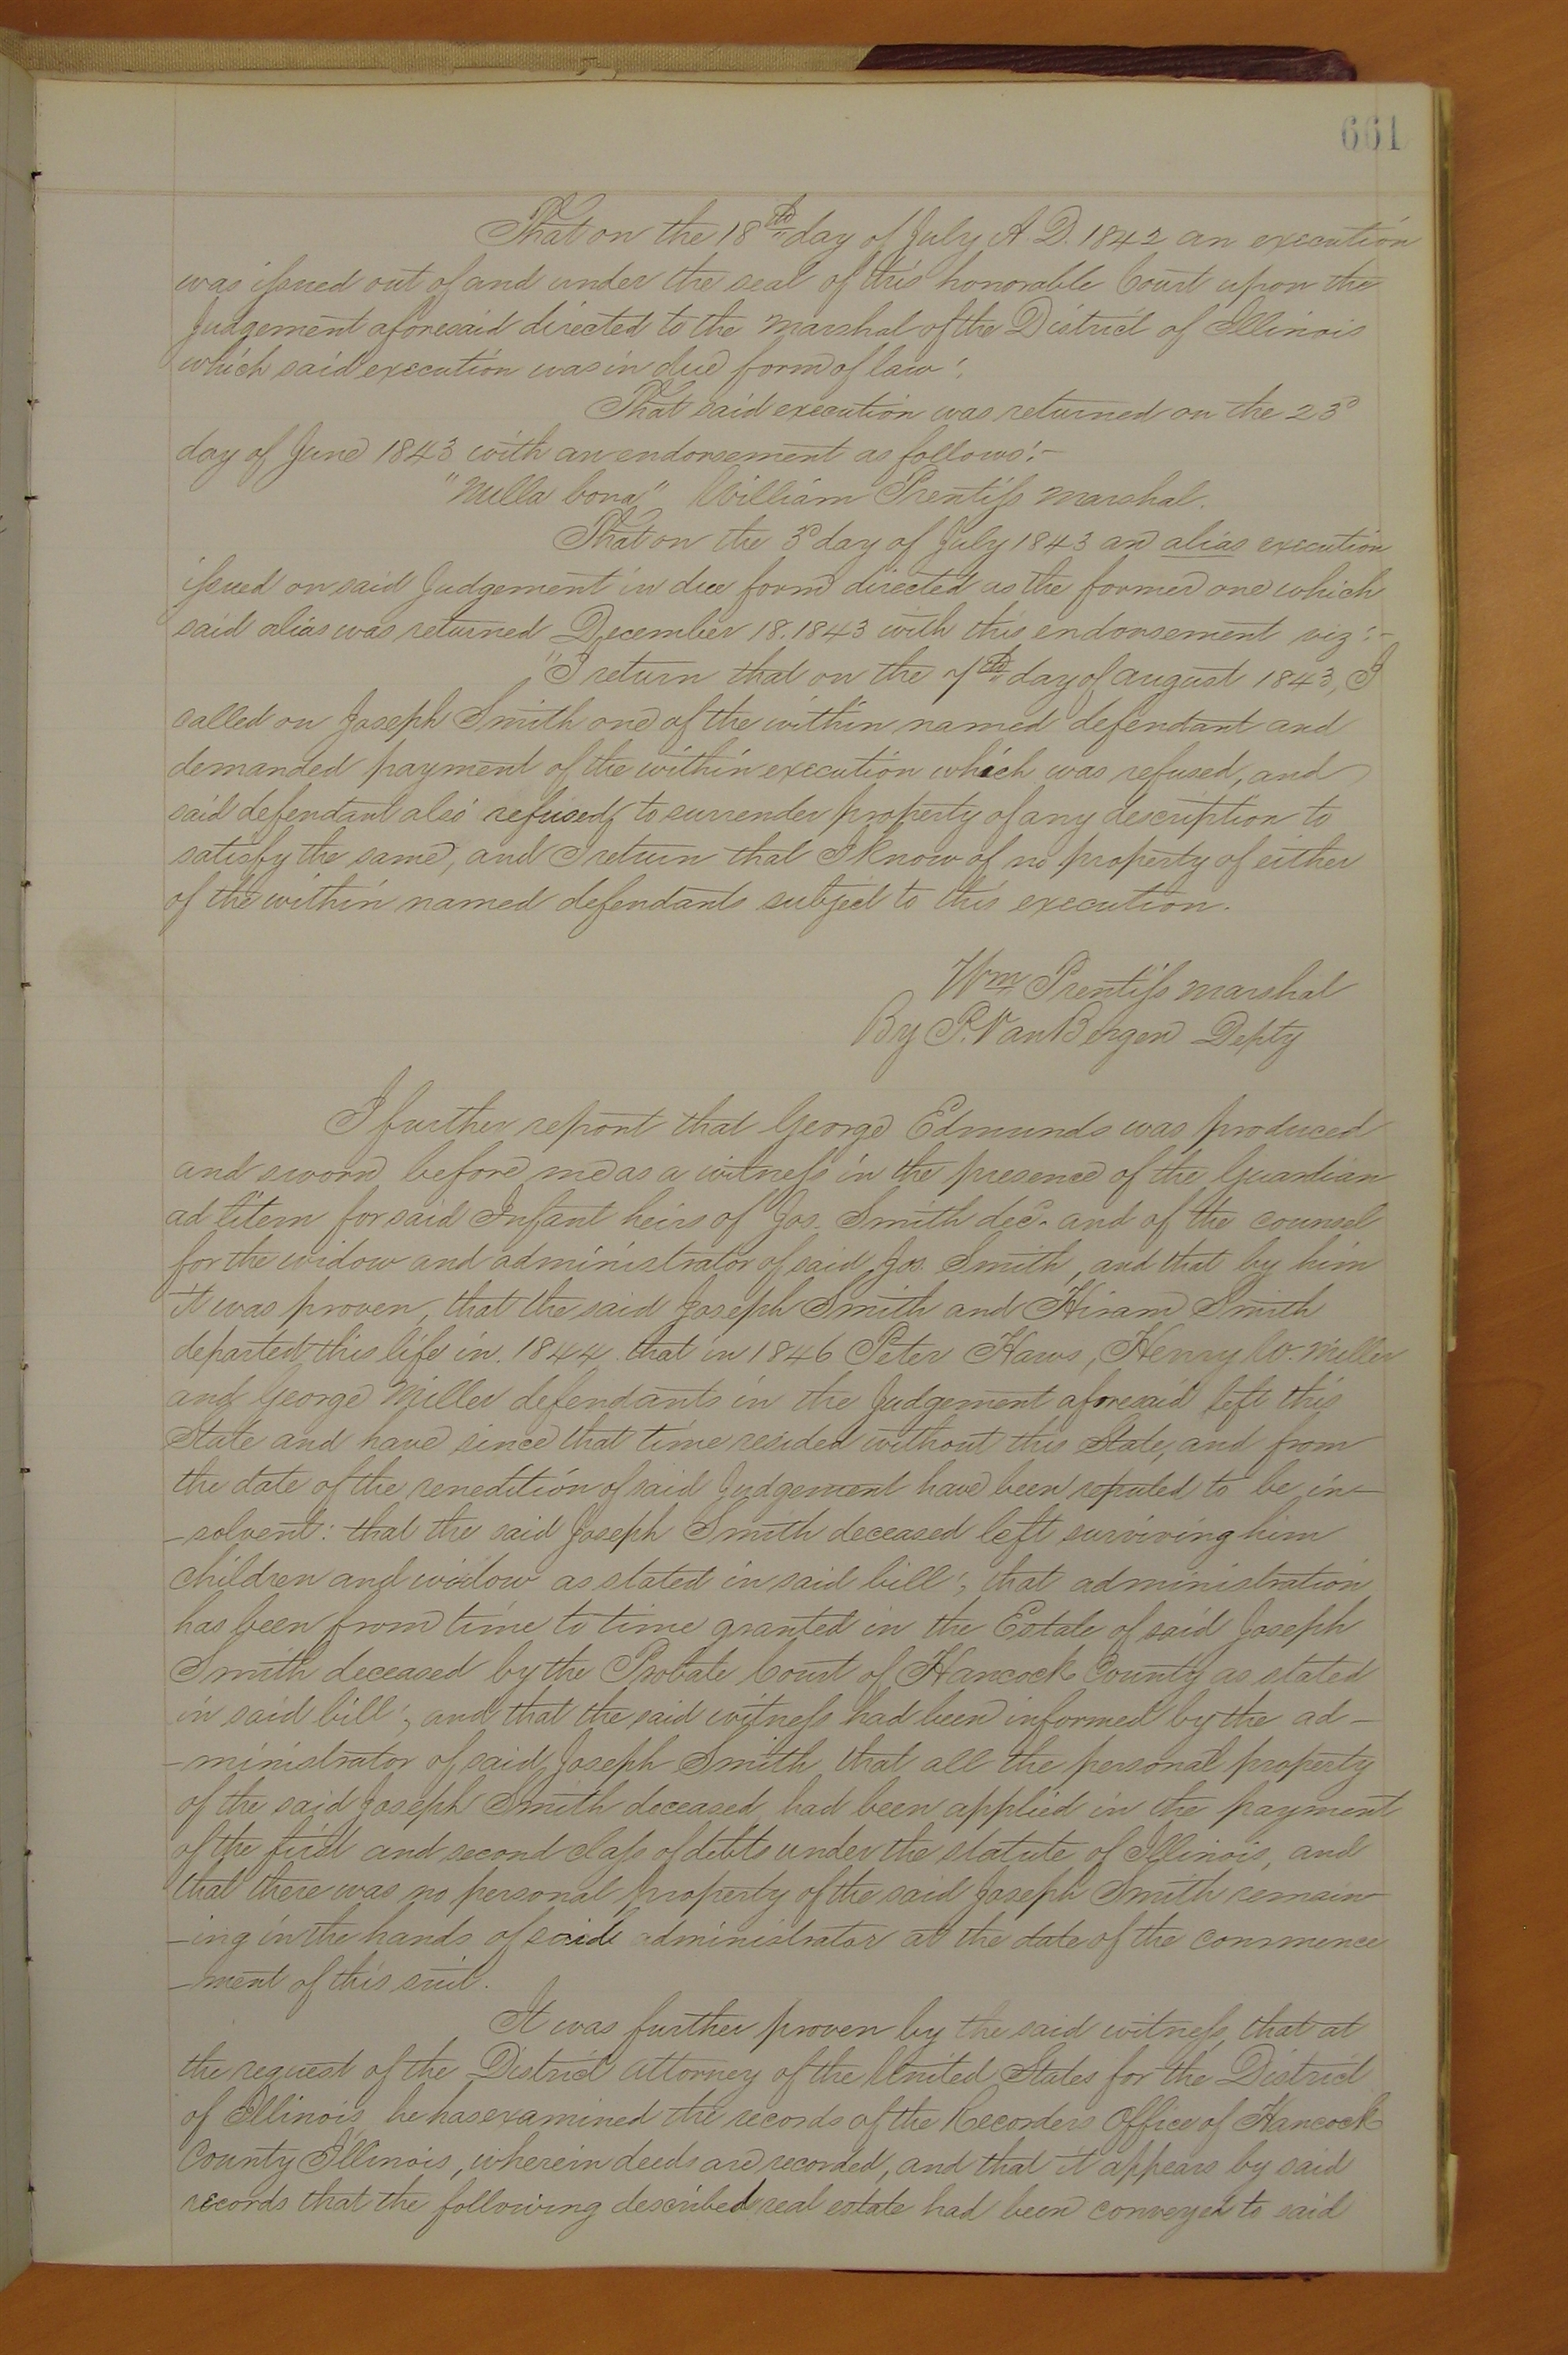 661
That on the 18th day of July A.D. 1842 an execution
was issued out of and under the seal of this honorable Court upon the
Judgement aforesaid directed to the Marshal of the District of Illinois
which said execution was in due form of law;
That said execution was returned on the 23d
day of June 1843 with an endorsement as follows:-
"Nulla bona" William Prentiss Marshal.
That on the 3d day of July 1843 an alias execution
issued on said Judgement in due form directed as the former one which
said alias was returned December 18. 1843 with this endorsement viz:-
"I return that on the 7th day of August 1843, I
called on Joseph Smith one of the within named defendant and
demanded payment of the within execution which was refused, and
said defendant also refused, to surrender property of any description to
satisfy the same, and I return that I know of no property of either
of the within named defendants subject to this execution.
Wm Prentiss Marshal
By P. Van Bergen Depty
I further report that George Edmunds was produced
and sworn before me as a witness in the presence of the Guardian
ad litem for said Infant heirs of Jos. Smith decd. and of the counsel
for the widow and administrator of said Jos. Smith, and that by him
it was proven, that the said Joseph Smith and Hiram Smith
departed this life in. 1844. that in 1846 Peter Haws, Henry W. Miller
and George Miller defendants in the Judgement aforesaid left this
State and have since that time resided without this State, and from
the date of the renedition of said Judgement have been reputed to be in-
-solvent: that the said Joseph Smith deceased left surviving him
children and widow as stated in said bill; that administration
has been from time to time granted in the Estate of said Joseph
Smith deceased by the Probate Court of Hancock County as stated
in said bill; and that the said witness had been informed by the ad-
-ministrator of said, Joseph Smith that all the personal property
of the said Joseph Smith deceased had been applied in the payment
of the first and second class of debts under the statute of Illinois, and
that there was no personal property of the said Joseph Smith remain-
-ing in the hands of said administrator at the date of the commence
-ment of this suit.
It was further proven by the said witness, that at
the request of the District Attorney of the United States for the District
of Illinois, he has examined the records of the Recorders Office of Hancock
County Illinois, wherein deeds are recorded, and that it appears by said
records that the following described real estate had been conveyed to said